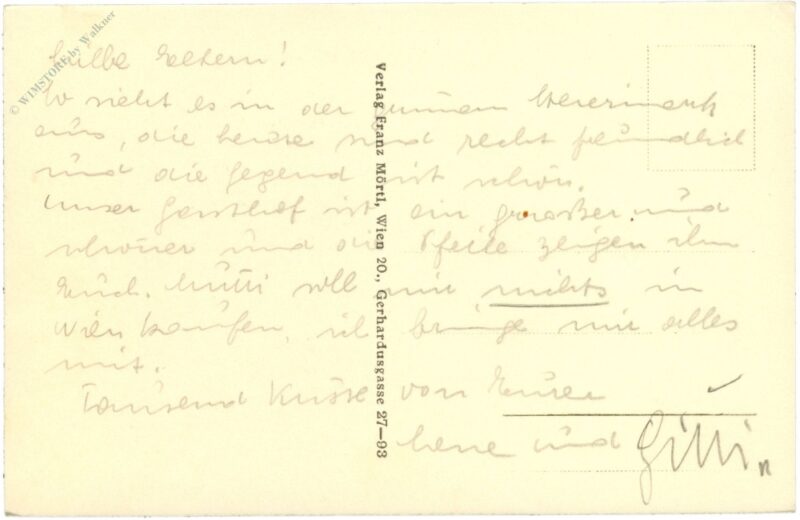 © WIMSTORF by Walkner
Verlag Franz Mörtl, Wien 20., Gerhardusgasse 27—93
Liebe Eltern!
So sieht es in der grünen Steiermark
aus, die Leute sind recht freundlich
und die Gegend ist schön.
Unser Gasthof ist ein großer und
schöner und die Pfeile zeigen ihn
Euch. Mutti soll mir nichts in
Wien kaufen, ich bringe mir alles
mit.
Tausend Küsse von Eurer
und Gitti